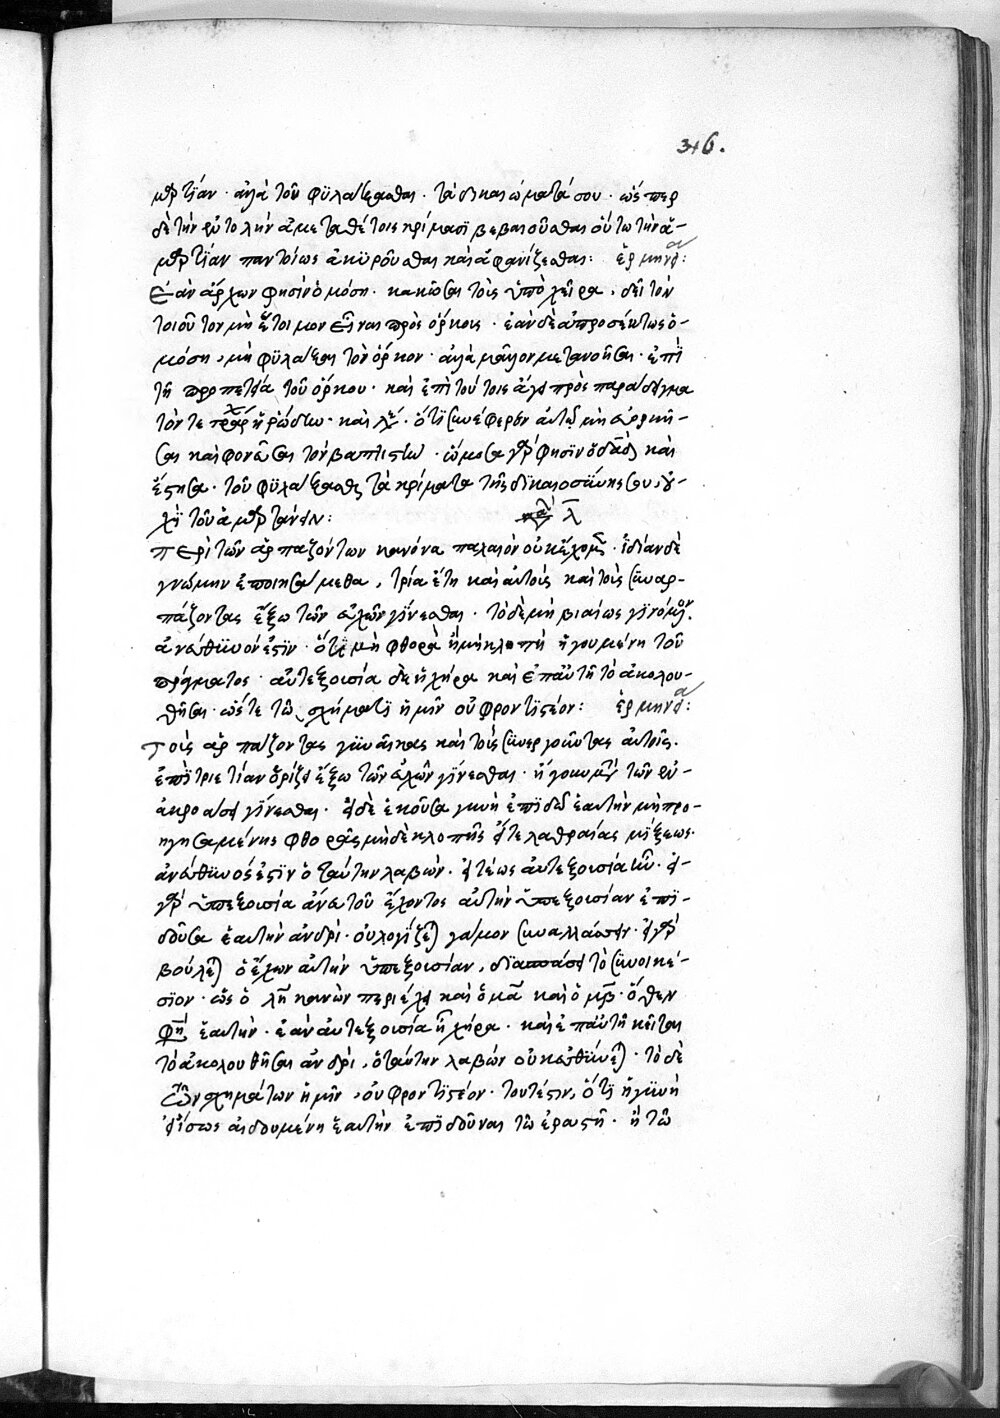 316.
μαρτίαν· ἀλλὰ τοῦ φυλάξασθαι· τὰ δικαιώματά σου· ὥσπερ
δὲ τὴν ἐντολὴν ἀμεταθέτοις κρίμασι βεβαιοῦσθαι οὕτω τὴν ἁ-
μαρτίαν παντοίως ἀκυροῦσθαι καὶ ἀφανίζεσθαι: ἑρμηνεία:
Ἐὰν ἄρχων φησὶν ὀμόσῃ· κακῶσαι τοὺς ὑπὸ χεῖρα, δεῖ τὸν
τοιοῦτον μὴ ἕτοιμον εἶναι πρὸς ὅρκους· ἐὰν δὲ ἀπροσέκτως ὀ-
μόσῃ, μὴ φυλάξαι τὸν ὅρκον· ἀλλὰ μᾶλλον μετανοῆσαι· ἐπὶ
τῇ προπετείᾳ τοῦ ὅρκου· καὶ ἐπὶ τούτοις ἄγει πρὸς παράδειγμα
τόν τε ἡρώδην· καὶ λέγει· ὅτι συνέφερεν αὐτῷ μὴ εὐορκῆ-
σαι καὶ φονεῦσαι τὸν βαπτιστήν· ὤμοσα γάρ φησιν ὁ δαδ καὶ
ἔστησα· τοῦ φυλάξασθαι τὰ κρίματα τῆς δικαιοσύνης σου, οὐ-
χὶ τοῦ ἁμαρτάνειν: λ
περὶ τῶν ἁρπαζόντων κανόνα παλαιὸν οὐκ ἔχομεν· ἰδίαν δὲ
γνώμην ἐποιησάμεθα, τρία ἔτη καὶ αὐτοὺς καὶ τοὺς συναρ-
πάζοντας ἔξω τῶν εὐχῶν γίνεσθαι· τὸ δὲ μὴ βιαίως γινόμενον.
ἀνεύθυνόν ἐστιν· ὅταν μὴ φθορὰ ἢ μὴ κλοπὴ ἡγουμένη τοῦ
πράγματος· αὐτεξουσία δὲ ἡ χήρα καὶ ἐπ' αὐτῇ τὸ ἀκολου-
θῆσαι· ὥστε τῶν σχημάτων ἡμῖν οὐ φροντιστέον: ἑρμηνεία:
Τοὺς ἁρπάζοντας γυναῖκας καὶ τοὺς συνεργοῦντας αὐτοῖς.
ἐπὶ τριετίαν ὁρίζει ἔξω τῶν εὐχῶν γίνεσθαι· ἤγουν μετὰ τῶν ἐν
ἀκροάσει γίνεσθαι· εἰ δὲ ἑκοῦσα γυνὴ ἐπιδῷ ἑαυτὴν μὴ προ-
ηγησαμένης φθορᾶς μηδὲ κλοπῆς εἴτε λαθραίας μίξεως·
ἀνεύθυνός ἐστιν ὁ ταύτην λαβών· εἴ τέως αὐτεξουσία ἦν· εἰ
γὰρ ὑπεξουσία ἄνευ τοῦ ἔχοντος αὐτὴν ὑπεξουσίαν ἐπι-
δοῦσα ἑαυτὴν ἀνδρί· οὐ λογίζεται γάμον συναλλάσσειν· εἰ γὰρ
βούλεται ὁ ἔχων αὐτὴν ὑπεξουσίαν, διασπάσει τὸ συνοικέ-
σιον· ὡς ὁ λη κανὼν περιέχει καὶ ὁ μα καὶ ὁ μβ· ὅθεν
φησὶ ἑαυτήν· ἐὰν αὐτεξουσία ᾖ χήρα· καὶ ἐπ' αὐτῇ κεῖται
τὸ ἀκολουθῆσαι ἀνδρί, ὁ ταύτην λαβὼν οὐκ εὐθύνεται· τὸ δὲ
τῶν σχημάτων ἡμῖν, οὐ φροντιστέον· τουτέστιν, ὅτι ἡ γυνὴ
ἴσως αἰδουμένη ἑαυτὴν ἐπιδοῦναι τῷ ἐραστῇ· ἢ τῷ